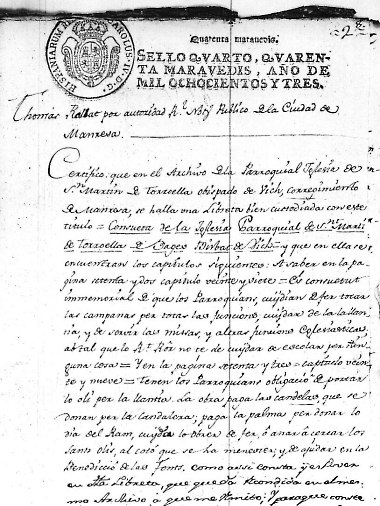 HISPANIARUM REX CAROLUS IV D G
Quarenta maravedis.
SELLO QVARTO, QVAREN-
TA MARAVEDIS, AÑO DE
MIL OCHOCIENTOS Y TRES.
Thomás por autoridad Rl. Publico de la Ciudad de
Manresa
Certifico: que en el Archivo de la Parroquial Iglesia de
Sn. Martin de Torroella obispado de Vich, corregimiento
de Manresa, se halla una Libreta bien custodiada con este
titulo = Consueta de la Iglesia Parroquial de St. Martí
de Torroella de Bages Bisbat de Vich = y que en ella se
encuentran los capitulos siguientes: A saber en la pa-
gina setenta y dos capitulo veinte y siete = Es consuetut
immemorial de que los Parroquians, cuÿdian de fer tocar
las campanas per totas las funcions, cuÿdar de la llàn-
tia, y de servir las missas, y altras funcions Eclesiasticas,
ab tal que lo Rt. Rór no te de cuÿdar de escolar per nin-
guna cosa = Y en la pagina setenta y tres = capitulo vein-
te y nueve = Tenen los Parroquians obligació de portar
lo oli per la llantia. La obra paga las candelas que se
donan per la Candalera; paga la palma per donar lo
dia del Ram, cuÿda lo obrer de fer, ó anar á cercar los
Sants olis, al cotó que se ha menester; y de ajudar en la
Benedicció de las Fonts, como assi consta y es de ver
en dha Libreta, que queda recondida en el mes-
mo Archivo a que me remito; Y paraque conste